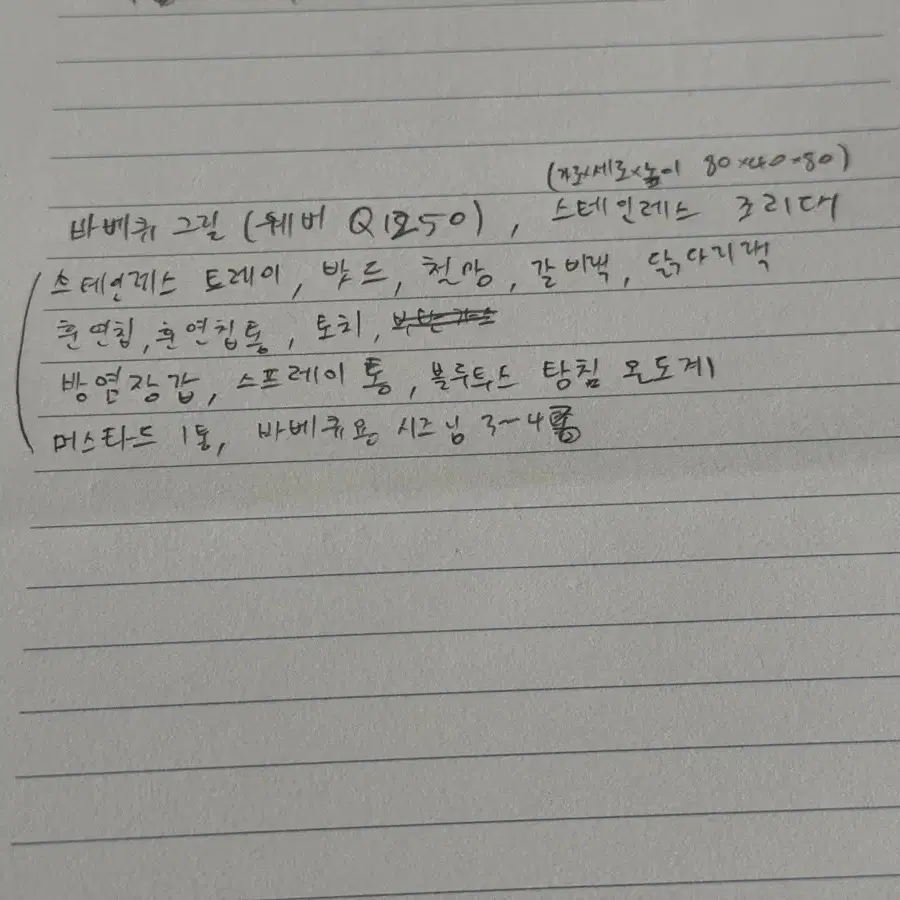 (가로x세로x높이 80x40x80)
바베큐 그릴 (웨버 Q1250), 스테인레스 조리대
스테인레스 트레이, 밧드, 철망, 갈비랙, 닭다리랙
훈연칩, 훈연칩통, 토치,
방염장갑, 스프레이 통, 블루투스 탐침 온도계1
머스타드 1통, 바베큐용 시즈닝 3~4통